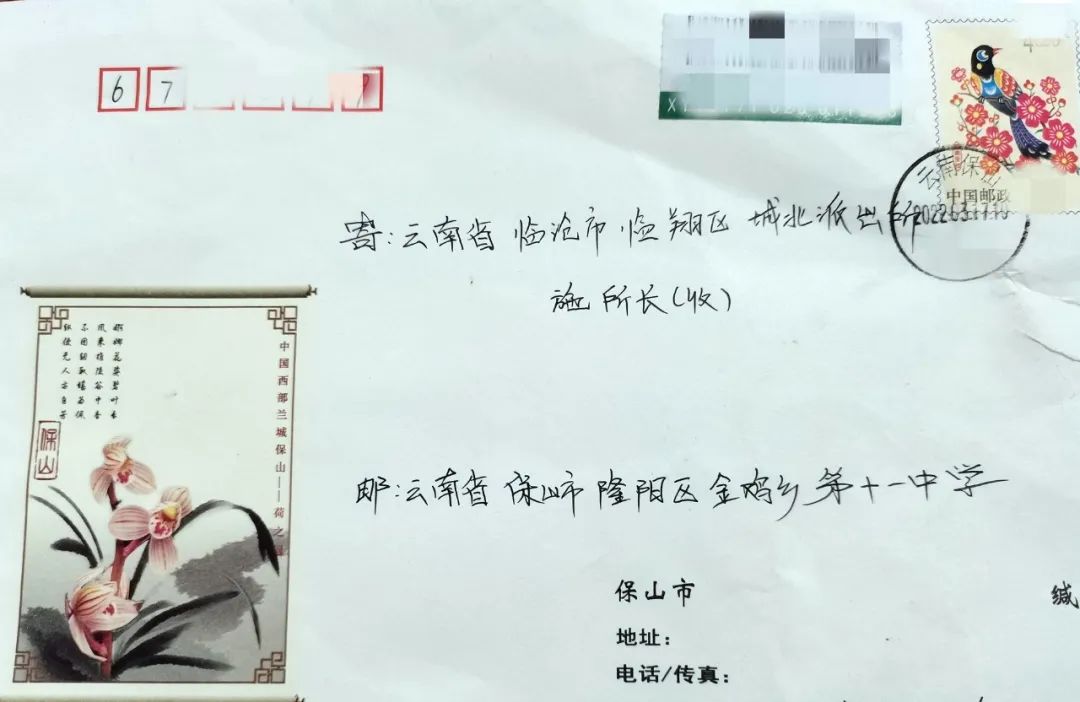 6 7
云南保山
中国邮政
寄:云南省 临沧市 临翔区 城北派出所
施所长(收)
娜娜花姿碧叶长
风来难隐谷中香
不因纫取堪为佩
纵使无人亦自芳
中国西部兰城保山——荷之冠
保山
邮:云南省 保山市 隆阳区金鸡乡第十一中学
保山市 缄
地址:
电话/传真: